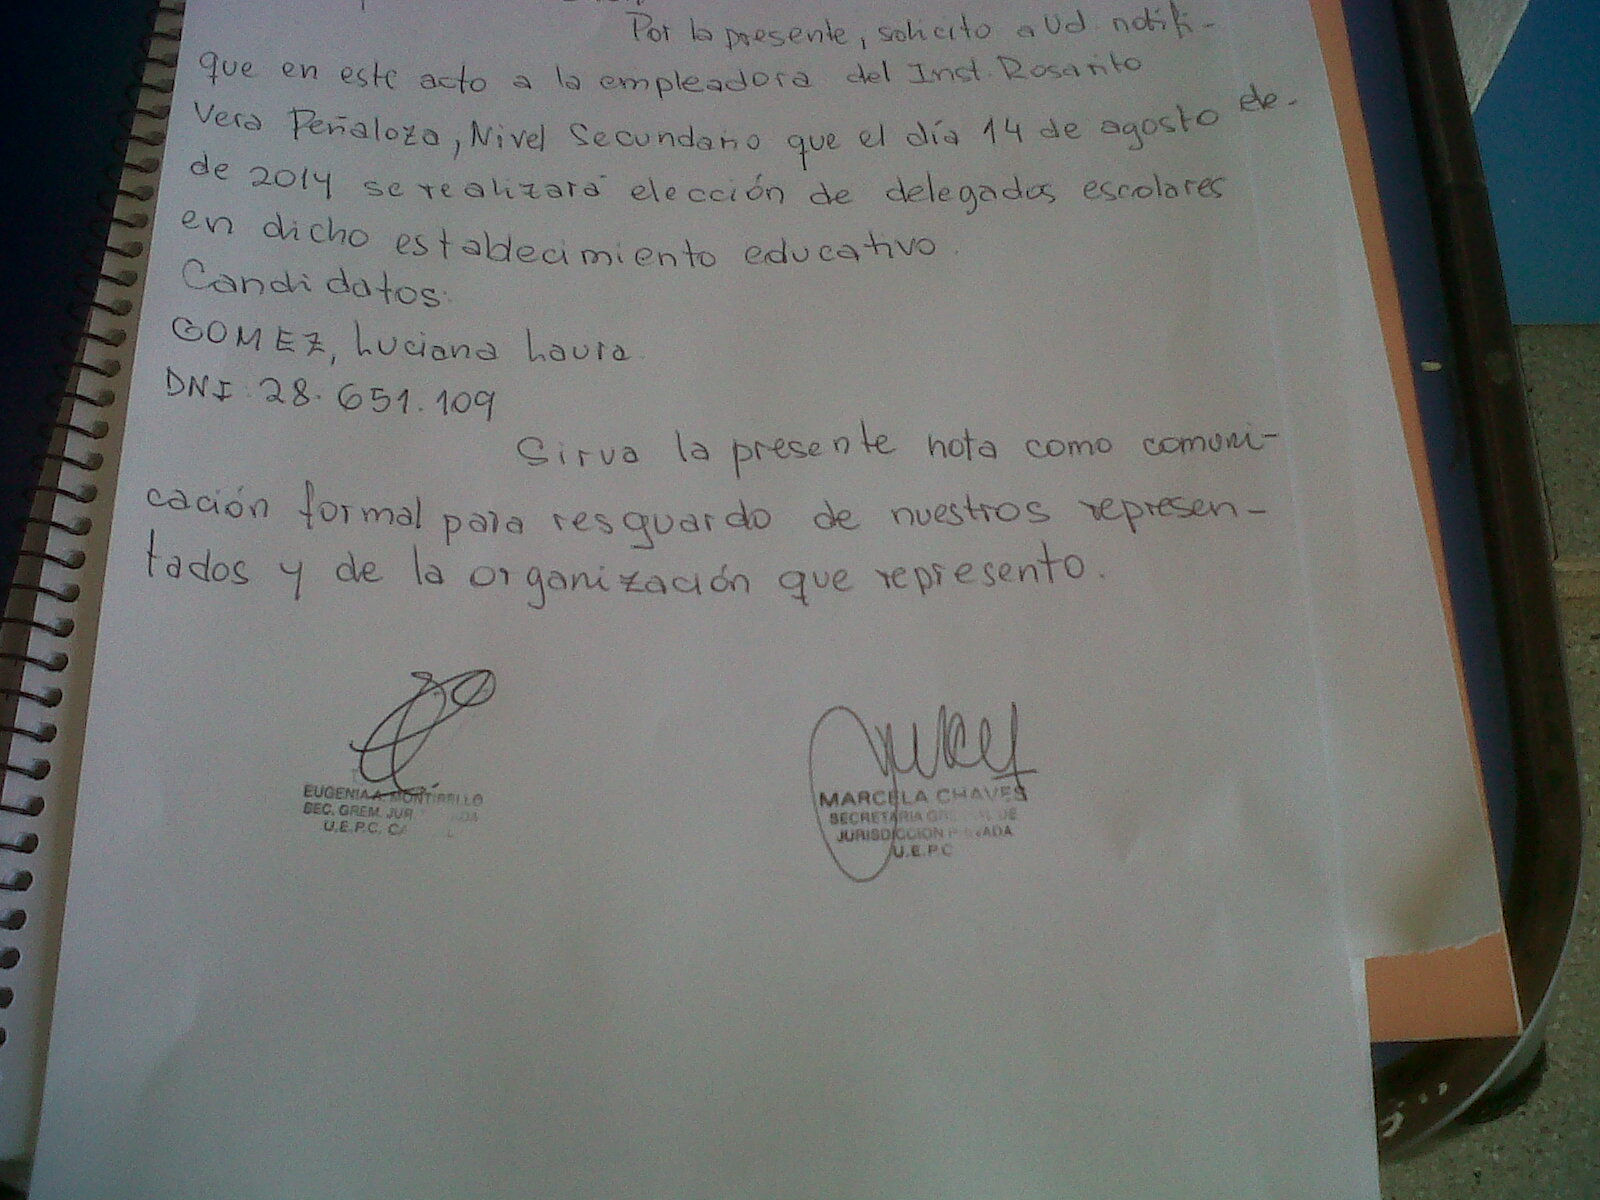 Por la presente, solicito a Ud. notifi-
que en este acto a la empleadora del Inst. Rosarito
Vera Peñaloza, Nivel Secundario que el día 14 de agosto de-
de 2014 se realizará elección de delegados escolares
en dicho establecimiento educativo.
Candidatos:
GOMEZ, Luciana Laura.
DNI: 28.651.109
Sirva la presente nota como comuni-
cación formal para resguardo de nuestros represen-
tados y de la organización que represento.
EUGENIA A.
SEC. GREM. JUR
U.E.P.C.
MARCELA CHAVES
SECRETARIA
JURISDICCION
U.E.P.C